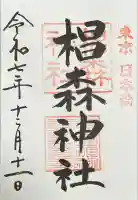 東京 日本橋
椙森神社
令和七年十二月十一日